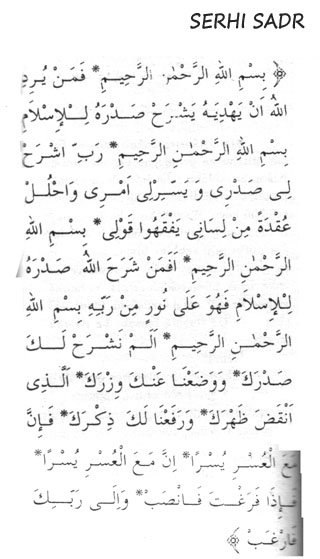 SERHI SADR
﴿ بِسْمِ اللهِ الرَّحْمٰنِ الرَّحِيمِ* فَمَنْ يُرِدِ
اللهُ اَنْ يَهْدِيَهُ يَشْرَحْ صَدْرَهُ لِلْاِسْلَامِ
بِسْمِ اللهِ الرَّحْمٰنِ الرَّحِيمِ* رَبِّ اشْرَحْ
لِى صَدْرِى وَ يَسِّرْلِى اَمْرِى وَاحْلُلْ
عُقْدَةً مِنْ لِسَانِى يَفْقَهُوا قَوْلِى* بِسْمِ اللهِ
الرَّحْمٰنِ الرَّحِيمِ* اَفَمَنْ شَرَحَ اللهُ صَدْرَهُ
لِلْاِسْلَامِ فَهُوَ عَلَى نُورٍ مِنْ رَبِّهِ بِسْمِ اللهِ
الرَّحْمٰنِ الرَّحِيمِ* اَلَمْ نَشْرَحْ لَكَ
صَدْرَكَ* وَوَضَعْنَا عَنْكَ وِزْرَكَ* اَلَّذِى
اَنْقَضَ ظَهْرَكَ* وَرَفَعْنَا لَكَ ذِكْرَكَ* فَاِنَّ
مَعَ الْعُسْرِ يُسْرًا* اِنَّ مَعَ الْعُسْرِ يُسْرًا*
فَاِذَا فَرَغْتَ فَانْصَبْ* وَاِلَى رَبِّكَ
فَارْغَبْ ﴾